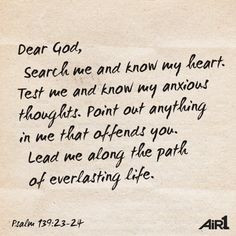 Dear God,
Search me and know my heart.
Test me and know my anxious
thoughts. Point out anything
in me that offends you.
Lead me along the path
of everlasting life.
Psalm 139:23-24
AiR1